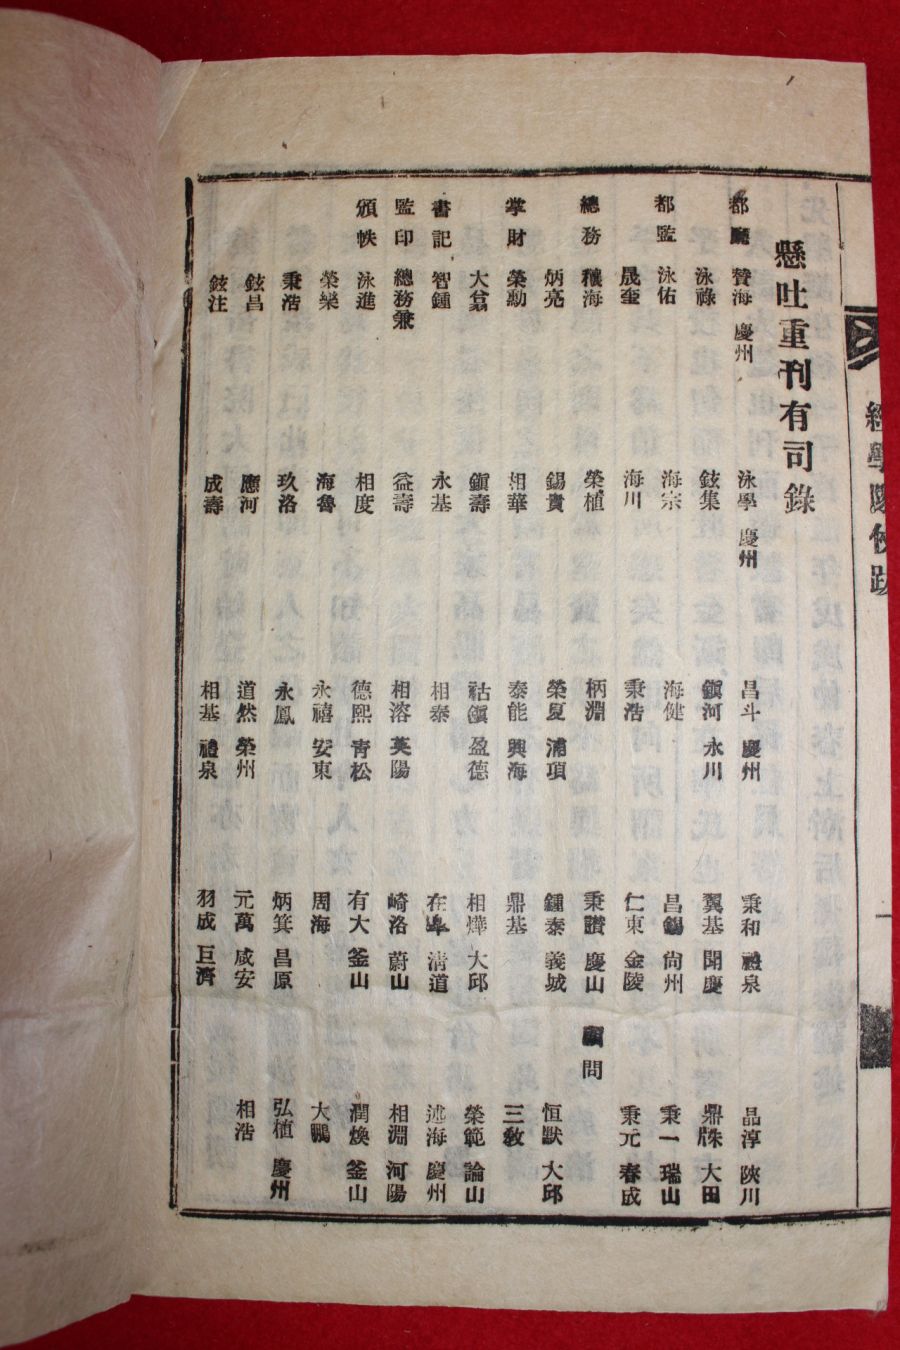 懸吐重刊有司錄
都廳 贊海 慶州 泳學 慶州 昌斗 慶州 秉和 禮泉 品淳 陜川
泳祿 鉉集 鎭河 永川 翼基 聞慶 鼎 大田
都監 泳佑 海宗 海健 昌錫 尙州 秉一 瑞山
晟奎 海川 秉浩 仁東 金陵 秉元 春成
總務 海 榮植 柄淵 秉讚 慶山 顧問
炳亮 錫賚 榮夏 浦項 鍾泰 義城 恒默 大邱
掌財 榮勳 相華 泰能 興海 鼎基 三敎
大翕 鎭壽 祜鎭 盈德 相燁 大邱 榮範 論山
書記 智鍾 永基 相泰 在 淸道 述海 慶州
監印 總務兼 益壽 相溶 英陽 崎洛 蔚山 相淵 河陽
頒帙 泳進 相度 德熙 靑松 有大 釜山 潤煥 釜山
榮樂 海魯 永禧 安東 周海 大鵬
秉浩 玖洛 永鳳 炳箕 昌原 弘植 慶州
鉉昌 應河 道然 榮州 元萬 咸安 相浩
鉉注 成壽 相基 禮泉 羽成 巨濟